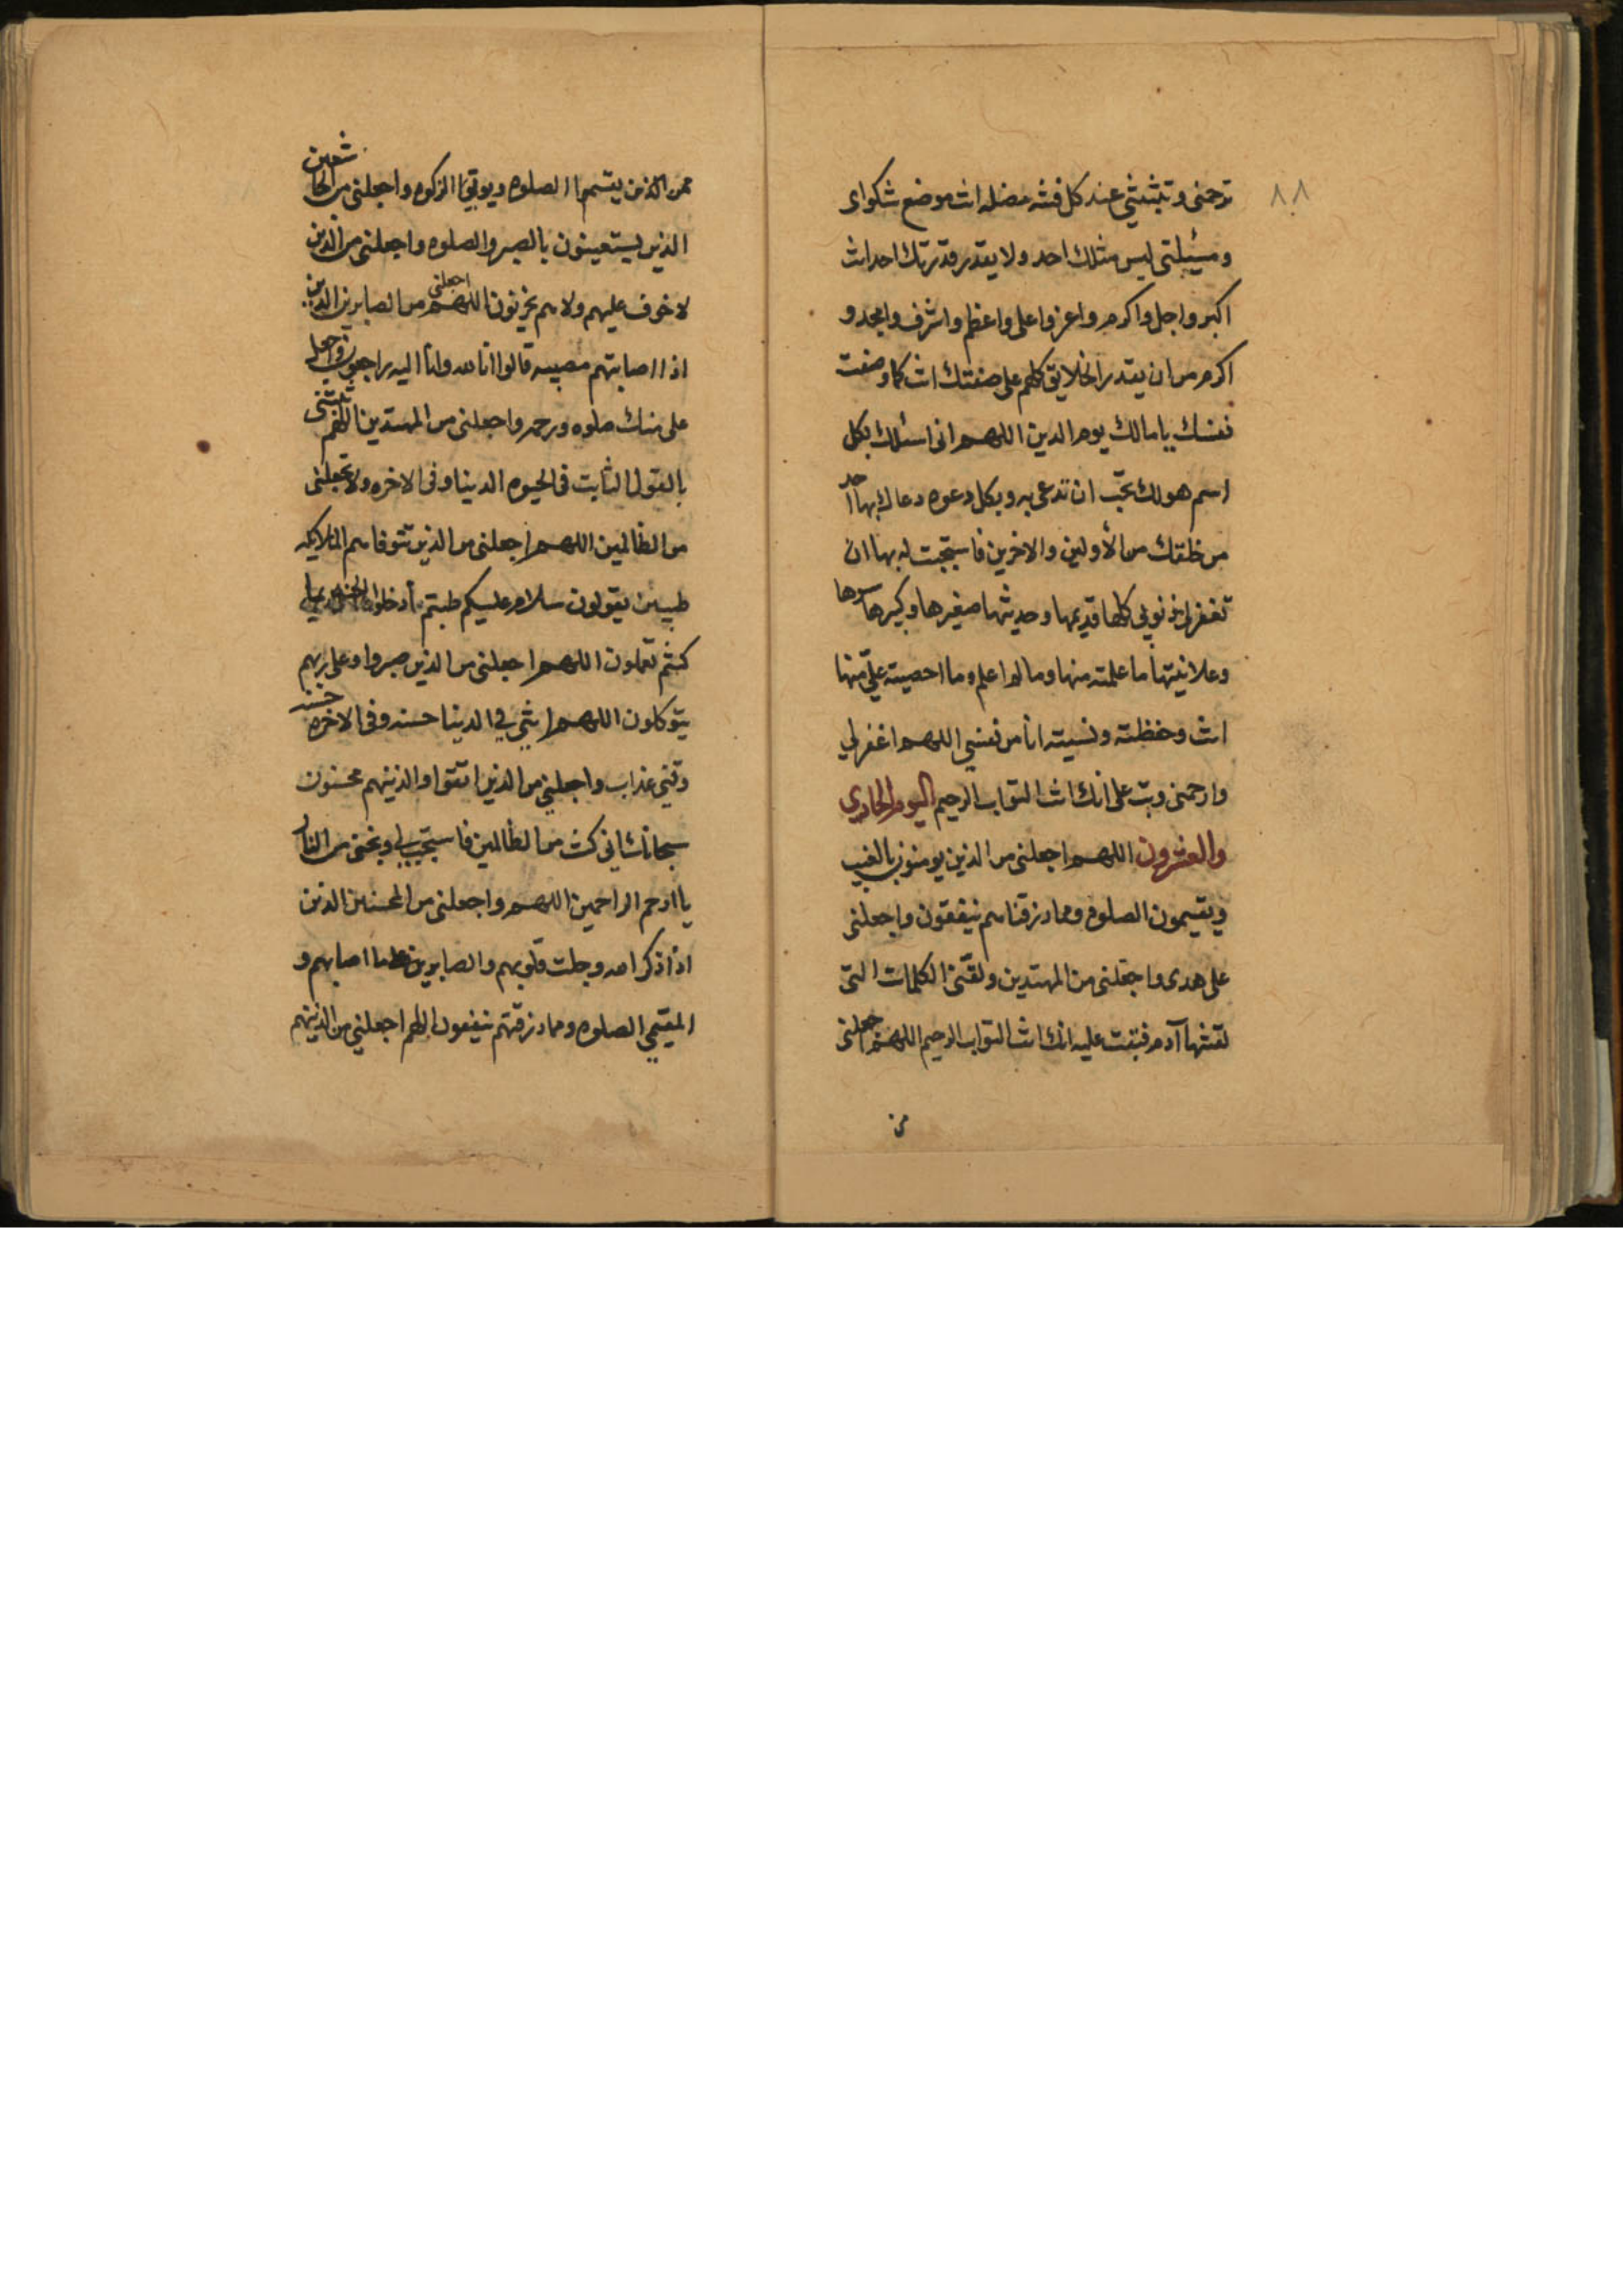 ٨٨
ترحمنى وتثبتني عند كل فتنه مضله انت موضع شكواى
ومسئلتى ليس مثلك احد ولا يقدر قدرتك احد انت
اكبر واجل واكرم واعز واعلى واعظم واشرف وامجد و
اكرم من ان يقدر الخلايق كلهم على صفتك انت كما وصفت
نفسك يا مالك يوم الدين اللهم انى اسئلك بكل
اسم هو لك تحب ان تدعى به وبكل دعوه دعاك بها احد
من خلقك من الأولين والاخرين فاستجبت له بها ان
تغفر لى ذنوبي كلها قديمها وحديثها صغيرها وكبيرها سرها
وعلانيتها ما علمته منها وما لم اعلم وما احصيته علىّ منها
انت وحفظته ونسيته انا من نفسي اللهم اغفر لي
وارحمنى وتب على انك انت التواب الرحيم اليوم الحادي
والعشرون اللهم اجعلنى من الذين يومنون بالغيب
ويقيمون الصلوه ومما رزقناهم ينفقون واجعلنى
على هدى واجعلنى من المهتدين ولقنى الكلمات التى
لقنتها آدم فتبت عليه انك انت التواب الرحيم اللهم اجعلنى
من
من الذين يقيموا الصلوه ويوتوا الزكوه واجعلنى من الخاشعين
الذين يستعينون بالصبر والصلوه واجعلنى من الذين
لا خوف عليهم ولا هم يحزنون اللهم اجعلنى من الصابرين الذين
اذا اصابتهم مصيبه قالوا انا لله وانا اليه راجعون واجعل
على منك صلوه ورحمه واجعلنى من المهتدين اللهم ثبتنى
بالقول الثابت فى الحيوه الدنيا وفى الاخره ولا تجعلنى
من الظالمين اللهم اجعلنى من الذين تتوفاهم الملايكه
طيبين يقولون سلام عليكم طبتم أدخلوا الجنه بما
كنتم تعملون اللهم اجعلنى من الذين صبروا وعلى ربهم
يتوكلون اللهم اتني في الدنيا حسنه وفى الاخره حسنه
وقني عذاب واجعلني من الذين اتقوا والذينهم محسنون
سبحانك انى كنت من الظالمين فاستجب لي ونجنى من النار
يا ارحم الراحمين اللهم واجعلنى من المحسنين الذين
اذا ذكر الله وجلت قلوبهم والصابرين على ما اصابهم و
المقيمي الصلوه ومما رزقتهم ينفقون اللهم اجعلني من الذينهم